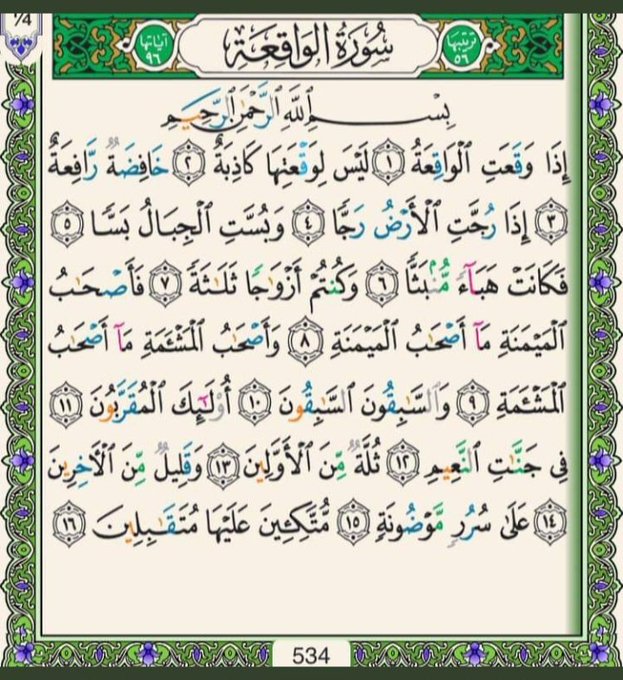 ١/٤
ترتيبها ٥٦
سُورَةُ الوَاقِعَةِ
آياتها ٩٦
بِسْمِ اللَّهِ الرَّحْمَٰنِ الرَّحِيمِ
إِذَا وَقَعَتِ الْوَاقِعَةُ ١ لَيْسَ لِوَقْعَتِهَا كَاذِبَةٌ ٢ خَافِضَةٌ رَّافِعَةٌ
٣ إِذَا رُجَّتِ الْأَرْضُ رَجًّا ٤ وَبُسَّتِ الْجِبَالُ بَسًّا ٥
فَكَانَتْ هَبَآءً مُّنۢبَثًّا ٦ وَكُنتُمْ أَزْوَٰجًا ثَلَٰثَةً ٧ فَأَصْحَٰبُ
الْمَيْمَنَةِ مَآ أَصْحَٰبُ الْمَيْمَنَةِ ٨ وَأَصْحَٰبُ الْمَشْـَٔمَةِ مَآ أَصْحَٰبُ
الْمَشْـَٔمَةِ ٩ وَالسَّٰبِقُونَ السَّٰبِقُونَ ١٠ أُو۟لَٰٓئِكَ الْمُقَرَّبُونَ ١١
فِى جَنَّٰتِ النَّعِيمِ ١٢ ثُلَّةٌ مِّنَ الْأَوَّلِينَ ١٣ وَقَلِيلٌ مِّنَ الْءَاخِرِينَ
١٤ عَلَىٰ سُرُرٍ مَّوْضُونَةٍ ١٥ مُّتَّكِـِٔينَ عَلَيْهَا مُتَقَٰبِلِينَ ١٦
534